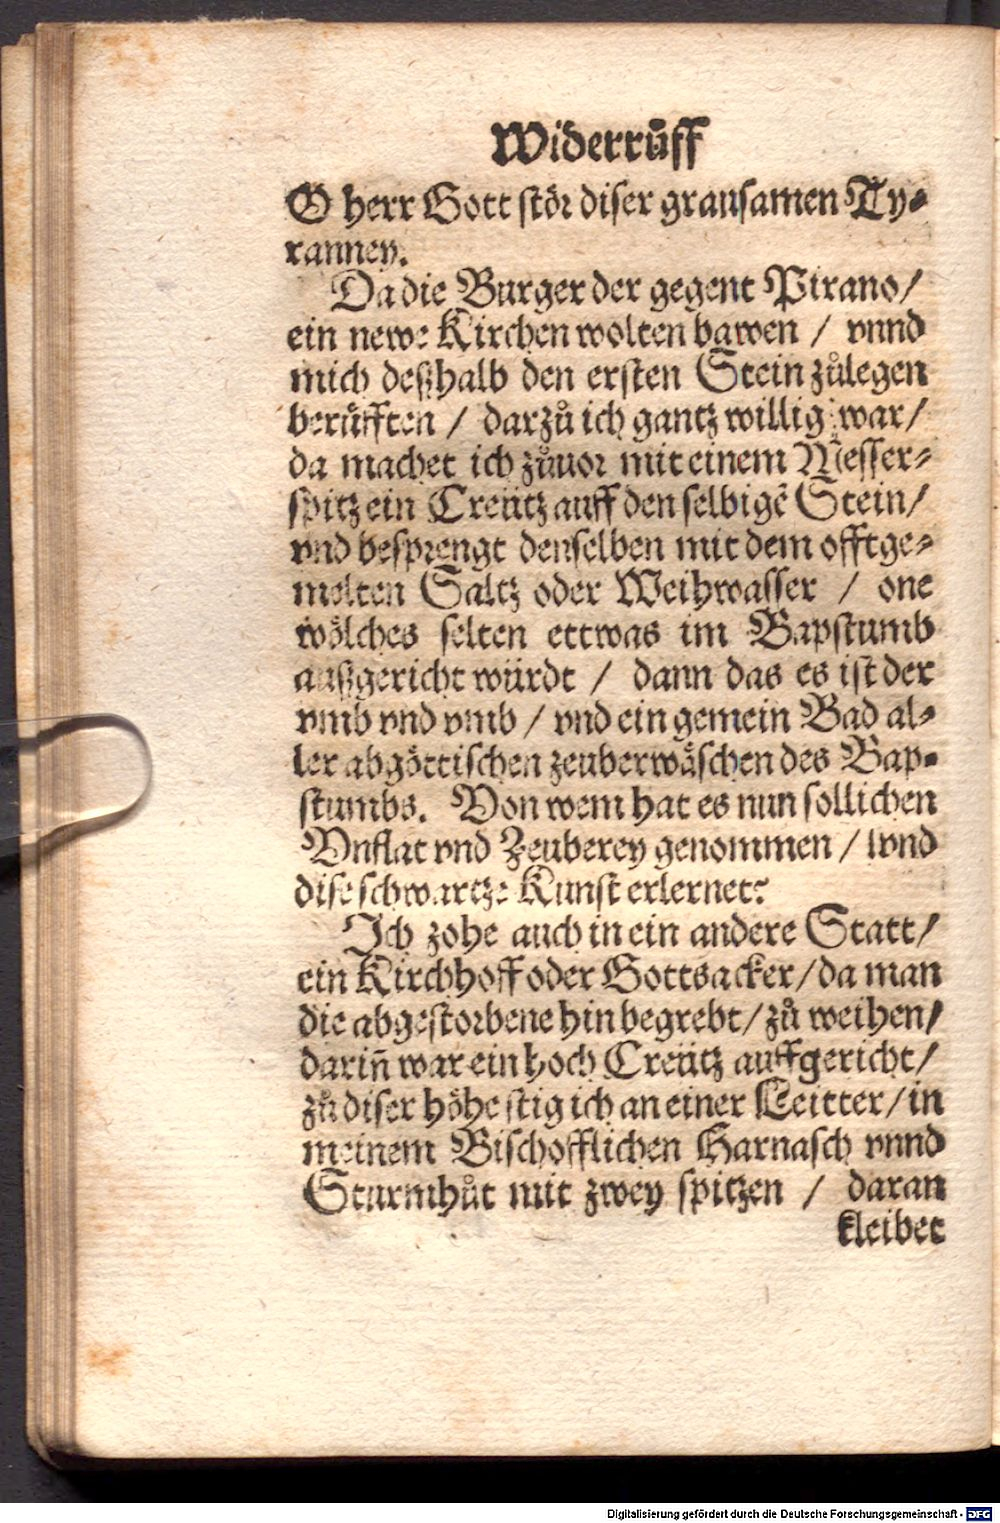 Widerruͤff
O herr Gott stoͤr diser grausamen Ty⸗
ranney.
Da die Burger der gegent Pirano/
ein newe Kirchen wolten bawen / vnnd
mich deßhalb den ersten Stein zuͦlegen
beruͤfften / darzuͦ ich gantz willig war/
da machet ich zuͦuor mit einem Messer⸗
spitz ein Creütz auff den selbigē Stein/
vnd besprengt denselben mit dem offtge⸗
melten Saltz oder Weihwasser / one
woͤlches selten ettwas im Bapstumb
außgericht würdt / dann das es ist der
vmb vnd vmb / vnd ein gemein Bad al⸗
ler abgoͤttischen zeuberwaͤschen des Bap⸗
stumbs. Von wem hat es nun sollichen
Vnflat vnd Zeuberey genommen / vnd
dise schwartze Kunst erlernet?
Ich zohe auch in ein andere Statt/
ein Kirchhoff oder Gottsacker/ da man
die abgestorbene hin begrebt/ zuͦ weihen/
dariñ war ein hoch Creütz auffgericht/
zuͦ diser hoͤhe stig ich an einer Leitter/ in
meinem Bischofflichen Harnasch vnnd
Sturmhuͦt mit zwey spitzen / daran
kleibet
Digitalisierung gefördert durch die Deutsche Forschungsgemeinschaft - DFG